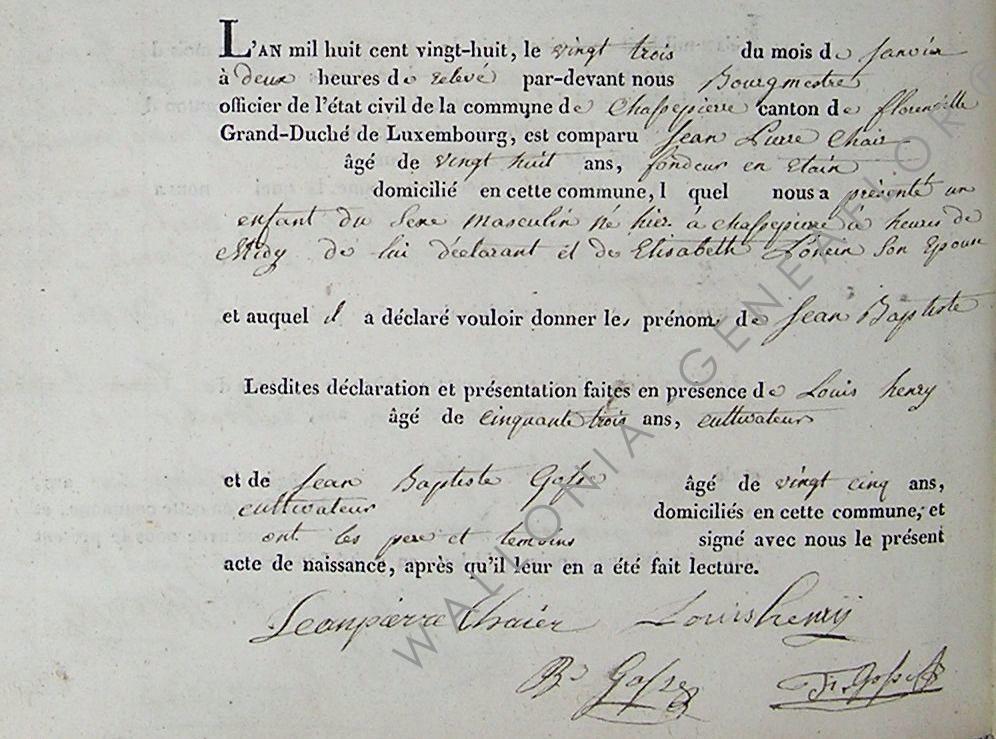 L'AN mil huit cent vingt-huit, le vingt trois du mois de Janvier
à deux heures de relevé par-devant nous Bourgmestre
officier de l'état civil de la commune de Chassepierre canton de florenville
Grand-Duché de Luxembourg, est comparu Jean Pierre Chaier
âgé de vingt huit ans, fondeur en Etain
domicilié en cette commune, l quel nous a présenté un
enfant du Sexe masculin né hier à chassepierre à heures de
Midy de lui déclarant et de Elisabeth Son Epouse
et auquel il a déclaré vouloir donner les prénoms de Jean Baptiste
Lesdites déclaration et présentation faites en présence de Louis henry
âgé de cinquante trois ans, cultivateur
et de Jean Baptiste Gosse âgé de vingt cinq ans,
cultivateur domiciliés en cette commune, et
ont les pere et temoins signé avec nous le présent
acte de naissance, après qu'il leur en a été fait lecture.
Jeanpierre Chaier Louis henry
Bte Gosse
WALLONIA GENEAFLOR